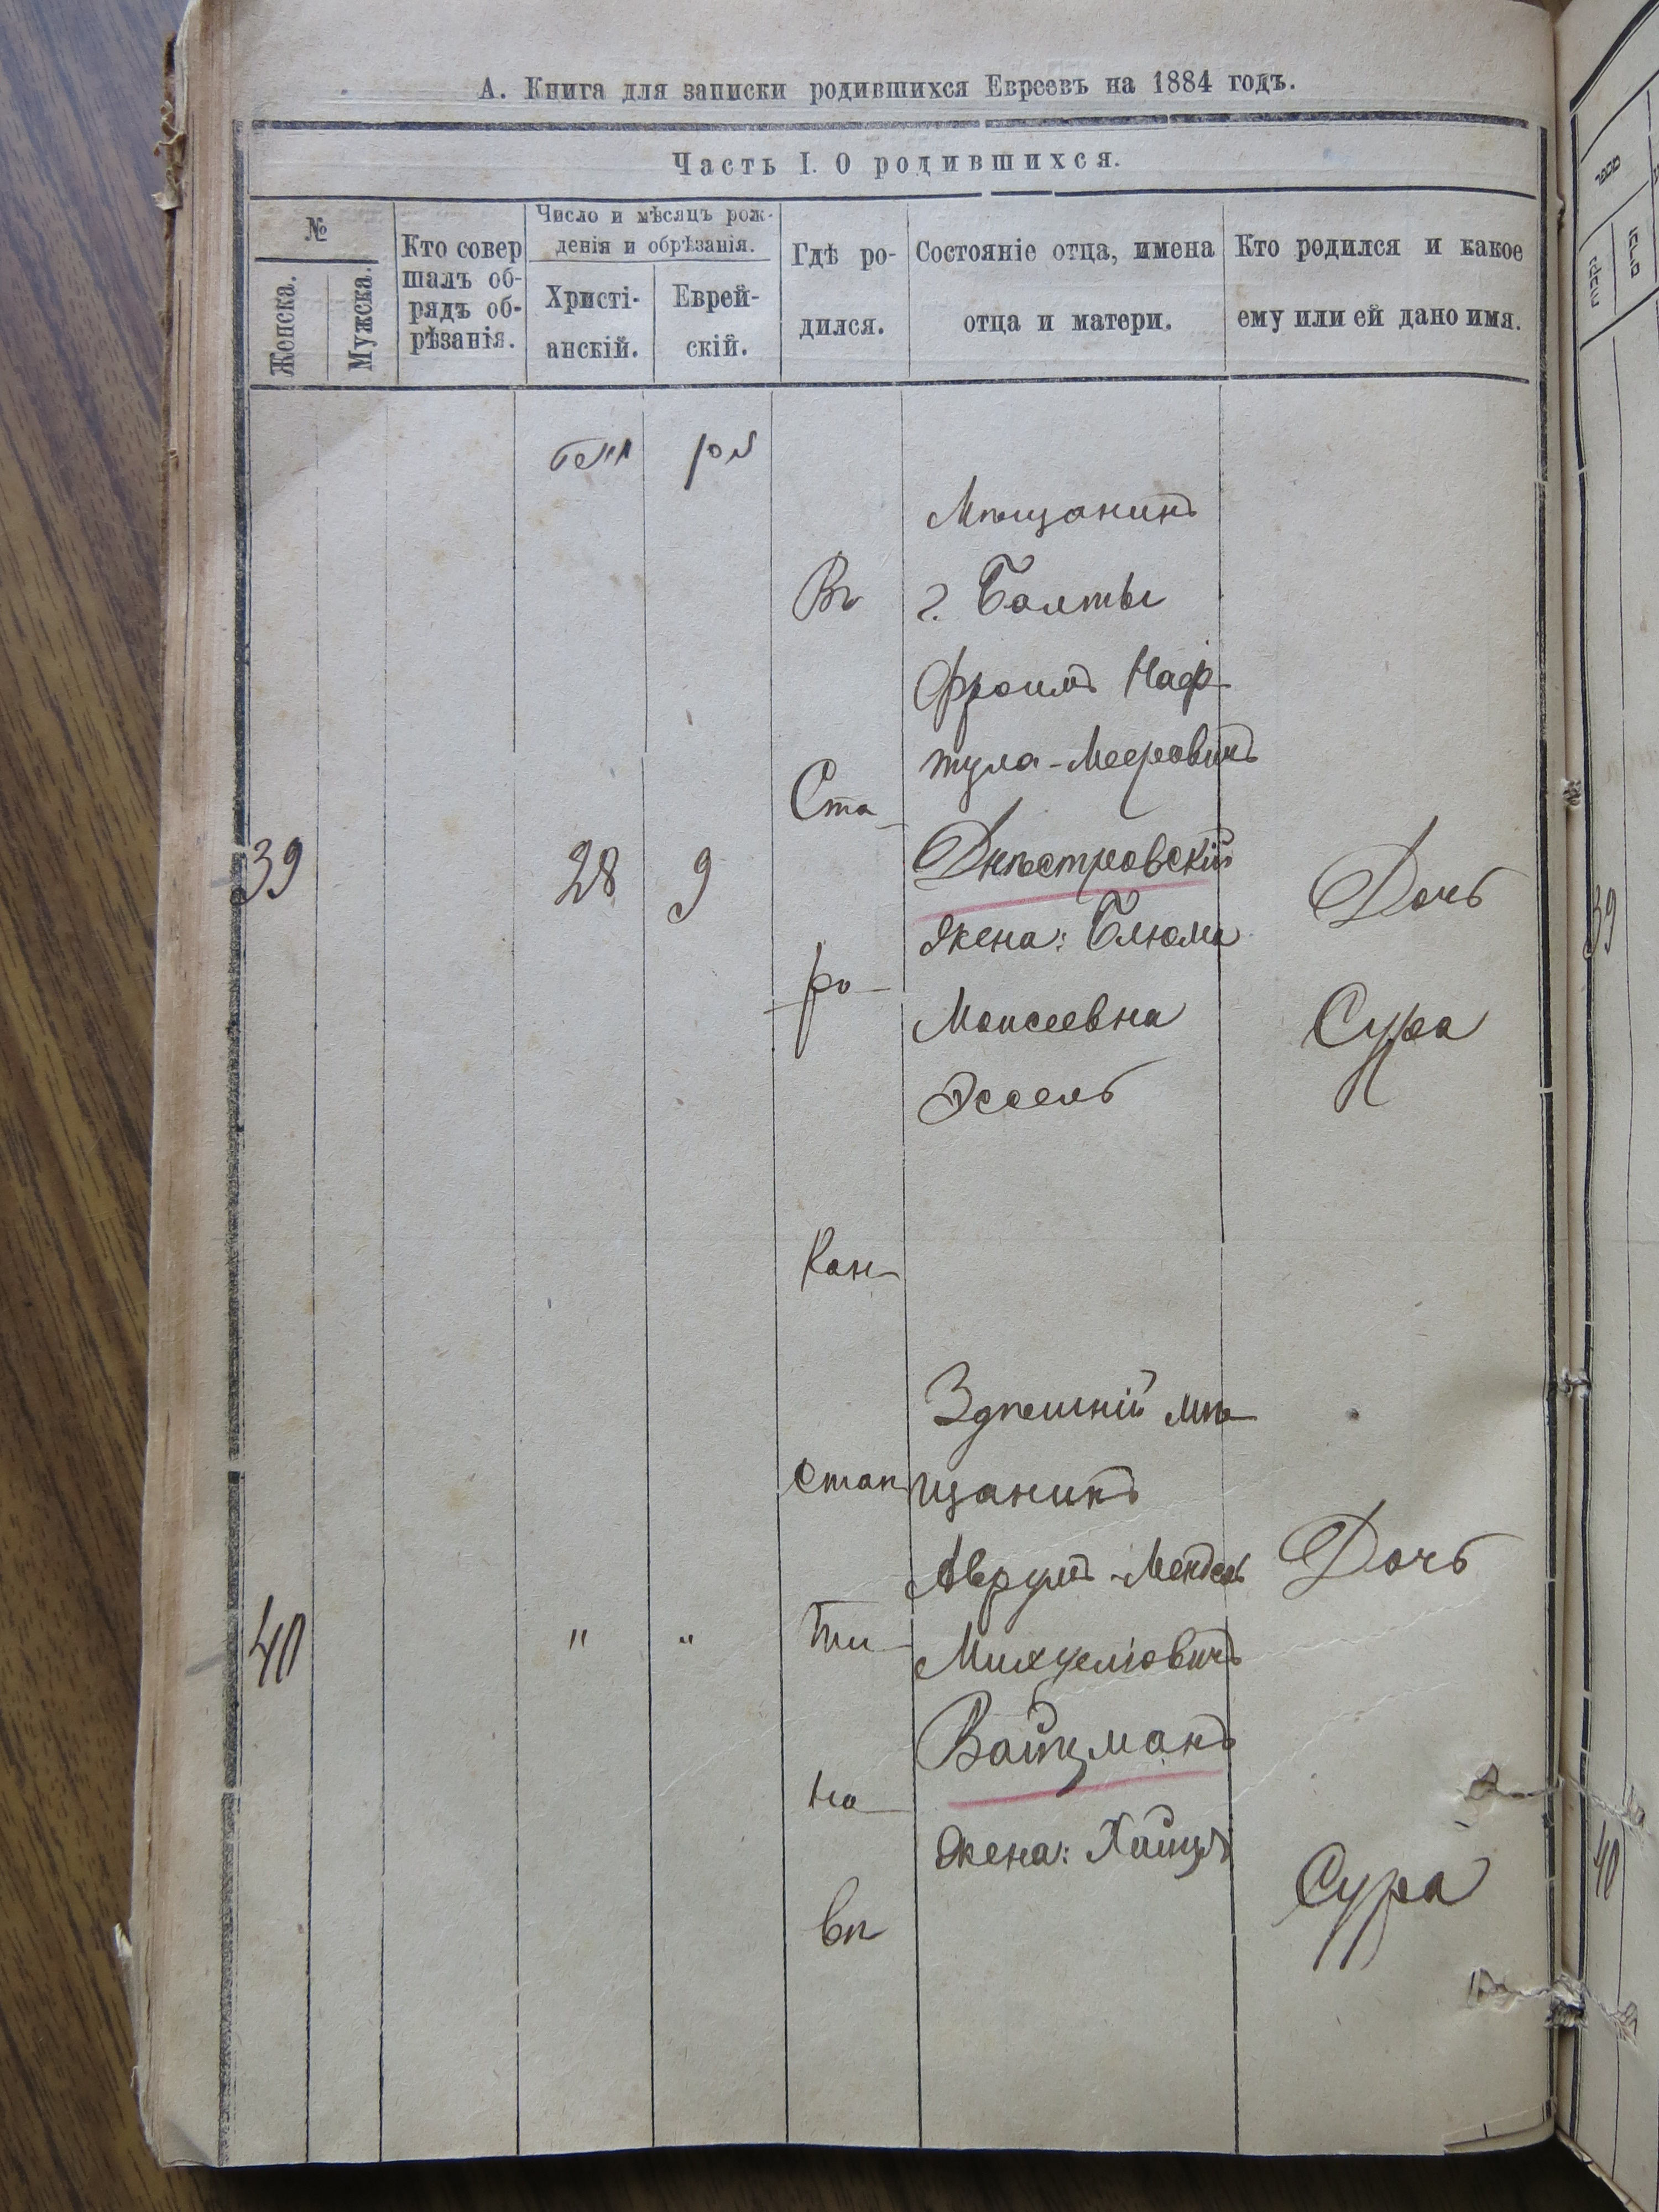 А. Книга для записки родившихся Евреевъ на 1884 годъ.
Часть I. О родившихся.
№
Женска.
Мужска.
Кто совер
шалъ об-
рядъ об-
рѣзанія.
Число и мѣсяцъ рож-
денія и обрѣзанія.
Христі-
анскій.
Еврей-
скій.
Гдѣ ро-
дился.
Состояніе отца, имена
отца и матери.
Кто родился и какое
ему или ей дано имя.
39
28
9
Мѣщанинъ
г. Балты
Фроимъ Наф-
тула-Мееровичъ
Днѣстровскій
жена: Блюма
Моисеевна
Эссель
Дочь
Сура
Въ
Ста-
ро-
Кон-
стан
ти-
но-
вѣ
40
"
"
Здѣшній мѣ-
щанинъ
Аврумъ-Мендель
Михцеліовичъ
Вайцманъ
жена: Хайця
Дочь
Сура
39
40